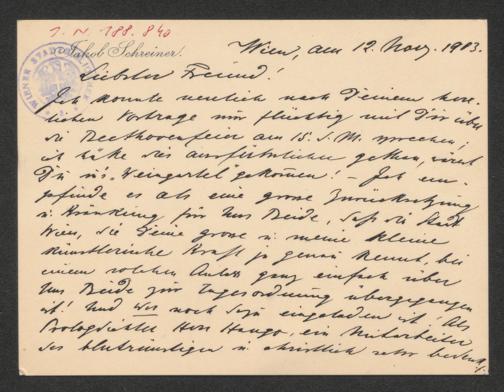 I. N 188.840
Jakob Schreiner.
Wien, am 12. Nov. 1903.
Liebster Freund!
Ich konnte neulich nach Deinem herr-
lichen Vortrage nur flüchtig mit Dir über
die Beethovenfeier am 15. d. M. sprechen;
ich hätte dies ausführlicher gethan, wärst
Du in's "Weingartel" gekommen! – Ich em-
pfinde es als eine grosse Zurücksetzung
u. Kränkung für uns Beide, daß die Stadt
Wien, die Deine grosse u. meine kleine
künstlerische Kraft ja genau kennt, bei
einem solchen Anlass ganz einfach über
uns Beide zur Tagesordnung übergegangen
ist! Und wer noch dazu eingeladen ist! Als
Prologdichter Herr Hango, ein Mitarbeiter
des blutrünstigen u. christlich sehr